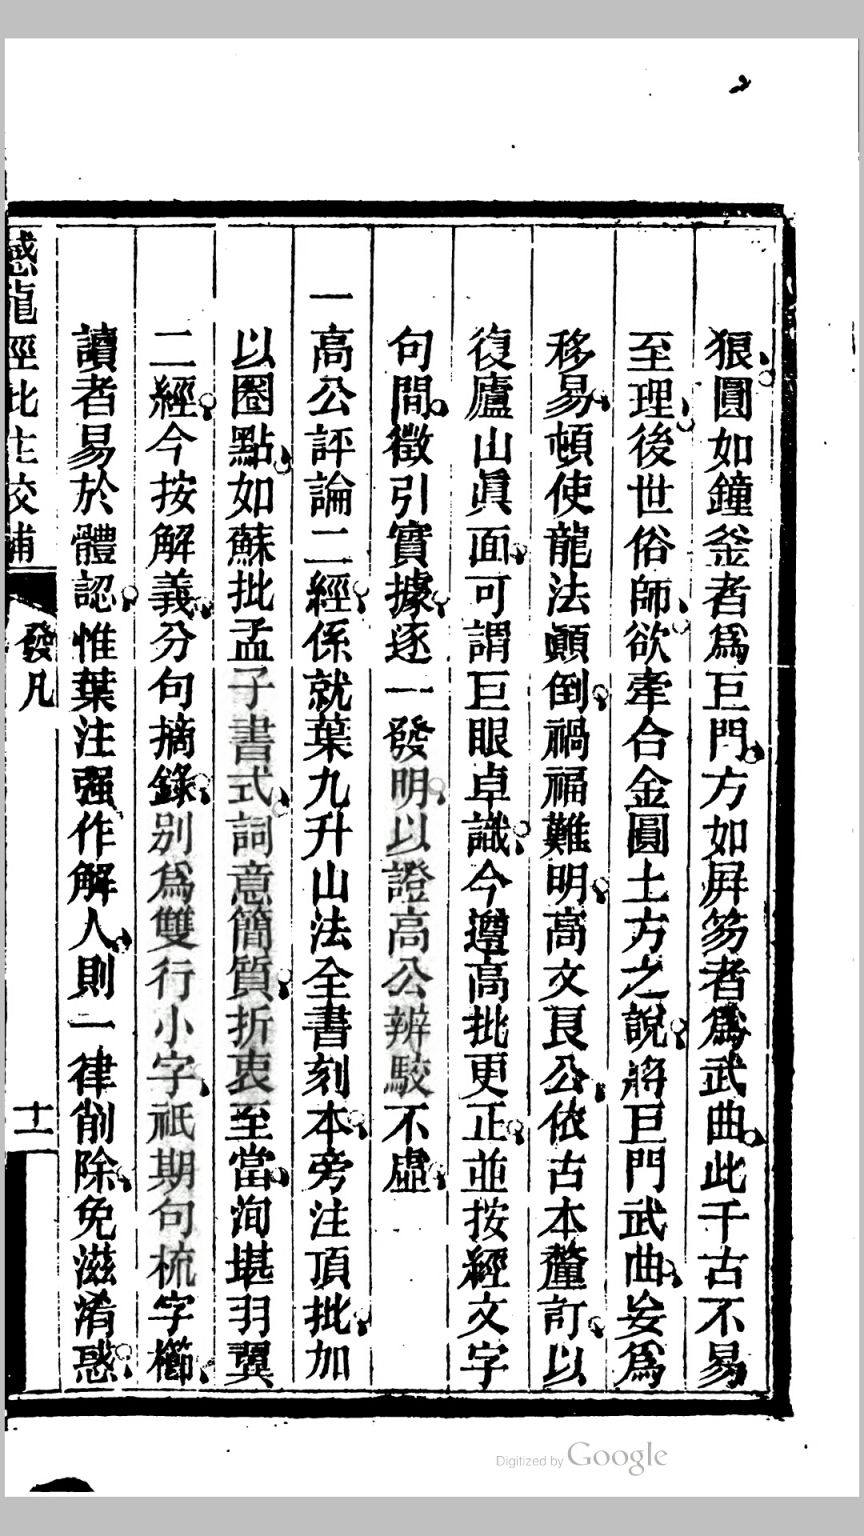 狠圓如鐘釜者爲巨門方如屏笏者爲武曲此千古不易
至理後世俗師欲牽合金圓土方之說將巨門武曲妄爲
移易頓使龍法顚倒禍福難明高文良公依古本釐訂以
復廬山眞面可謂巨眼卓識今遵高批更正並按經文字
句間徵引實據逐一發明以證高公辨駁不虛
一高公評論二經係就葉九升山法全書刻本旁注頂批加
以圈點如蘇批孟子書式詞意簡質折衷至當洵堪羽翼
二經今按解義分句摘錄別爲雙行小字祇期句梳字櫛
讀者易於體認惟葉注强作解人則一律削除免滋淆惑
撼龍經批注校補
發凡
十一
Digitized by Google